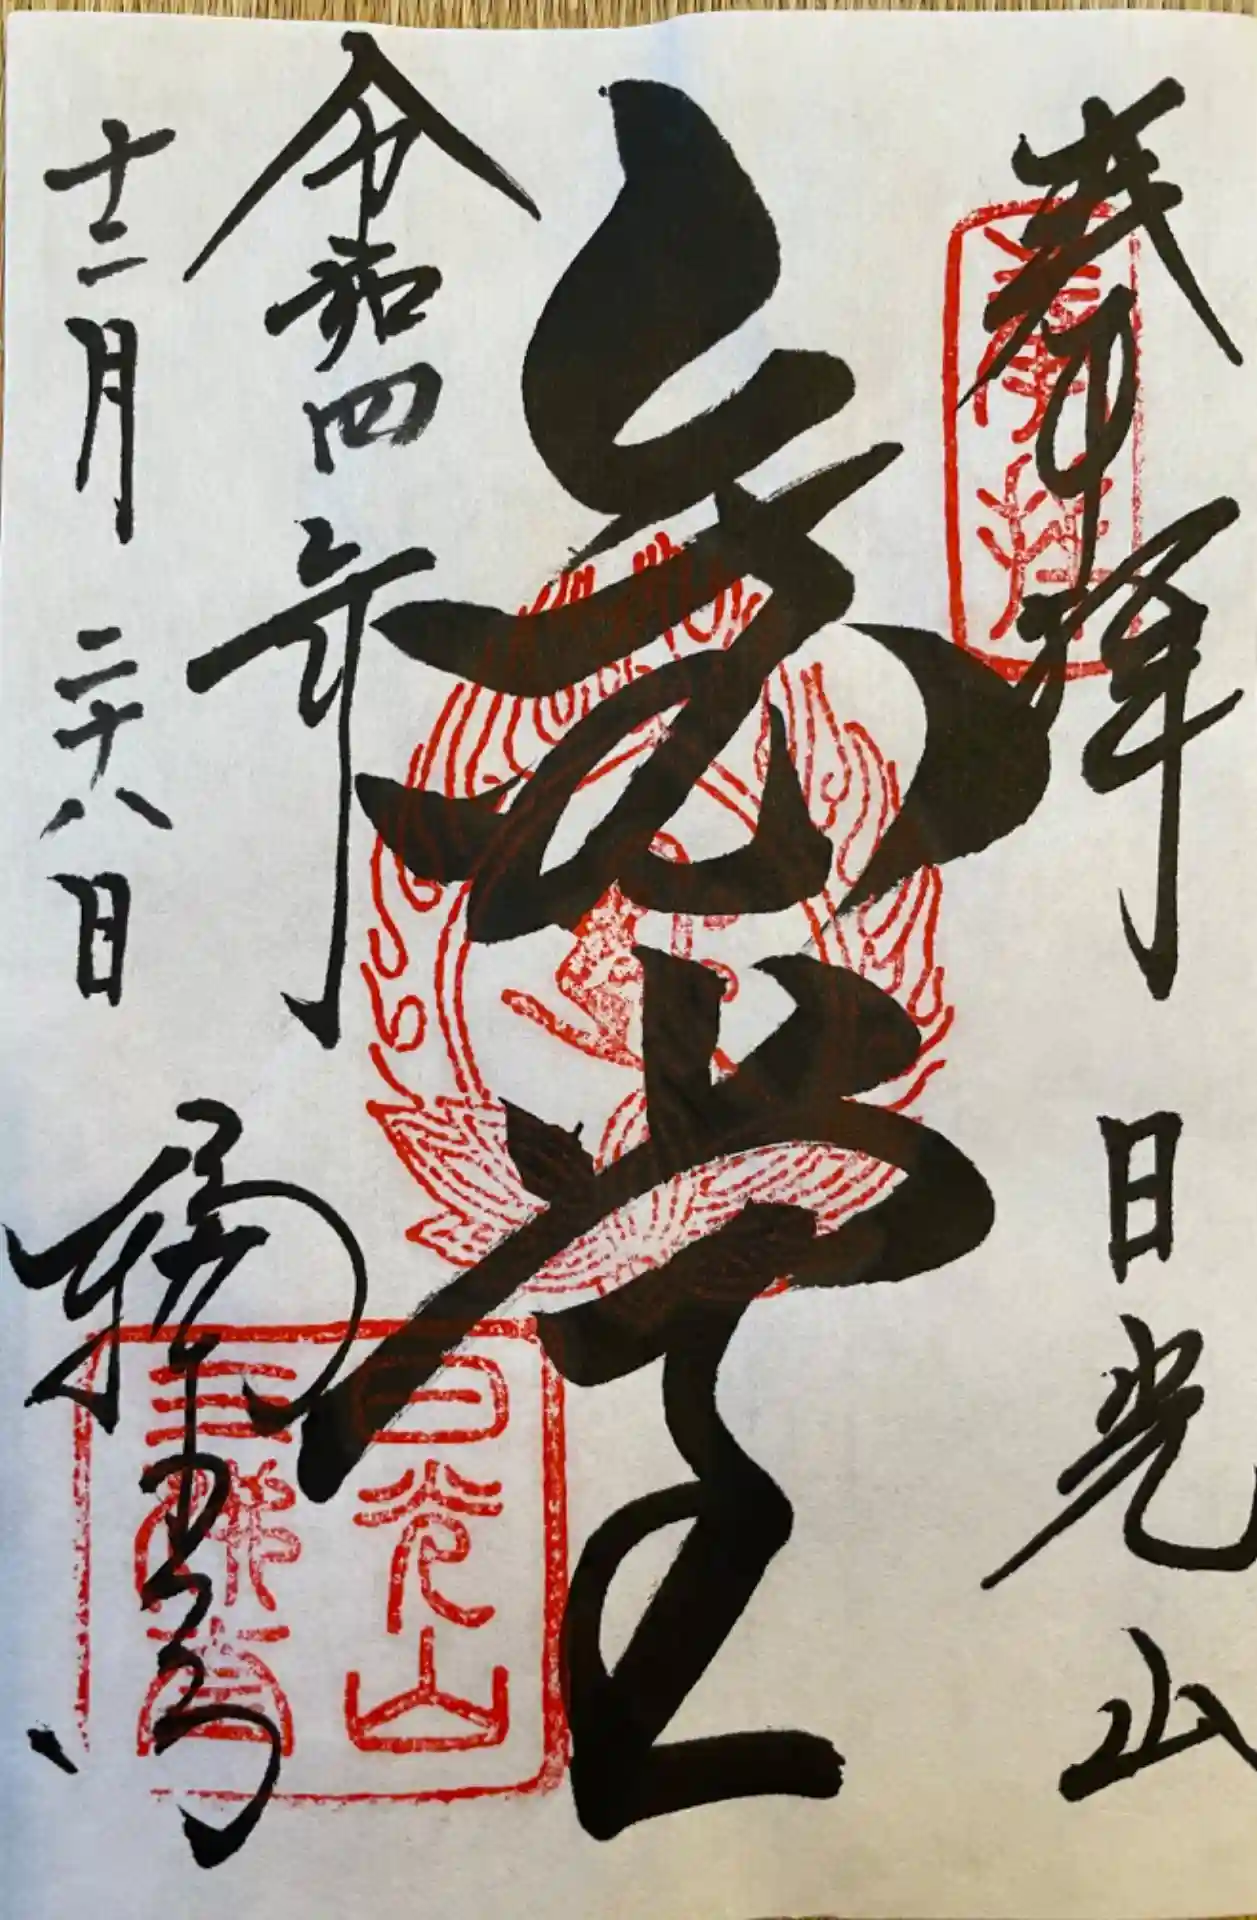 奉拝 日光山
金堂
令和四年
十二月二十八日
輪王寺
日光山
三佛堂